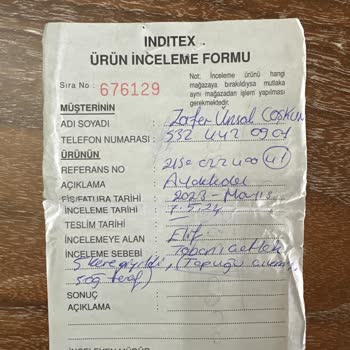 INDITEX
ÜRÜN İNCELEME FORMU
Sıra No : 676129
Not: İnceleme ürünü hangi
mağazaya bırakıldıysa mutlaka
aynı mağazadan işlem yapılması
gerekmektedir.
MÜŞTERİNİN
ADI SOYADI : Zafer Ünsal COŞKUN
TELEFON NUMARASI : 532 442 0904
ÜRÜNÜN
REFERANS NO : 2150 022 400 (41)
AÇIKLAMA : Ayakkabı
FİŞ/FATURA TARİHİ : 2023 - Mayıs
İNCELEME TARİHİ : 7.5.24
TESLİM TARİHİ :
İNCELEMEYE ALAN : Elif
İNCELEME SEBEBİ : Tabanı
5 kere giyildi, (Topuğu
sağ taraf)
SONUÇ
AÇIKLAMA :